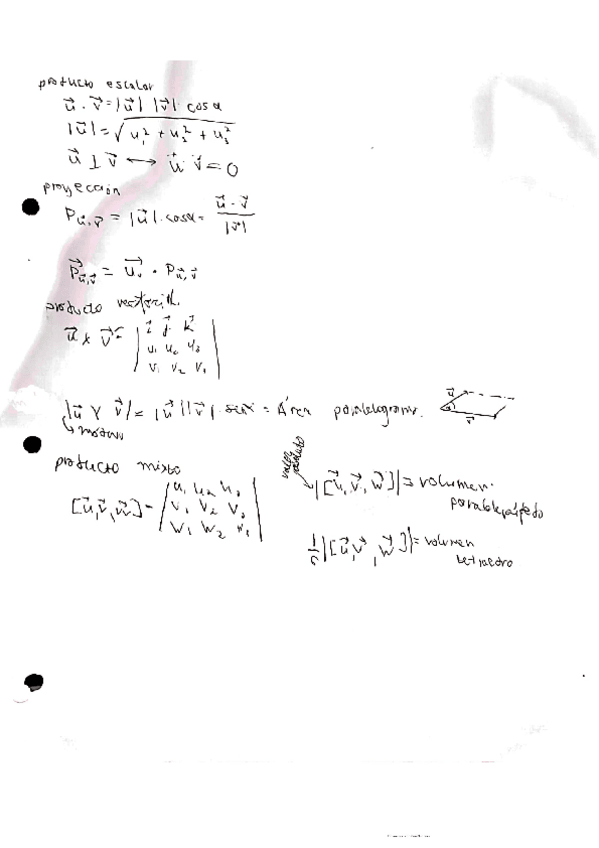 producto escalar
u⃗ · v⃗ = |u⃗| |v⃗| · cos α
|u⃗| = √(u₁² + u₂² + u₃²)
u⃗ ⊥ v⃗ ⟷ u⃗ · v⃗ = 0
proyección
P u⃗,v⃗ = |u⃗| · cos α = (u⃗ · v⃗) / |v⃗|
P⃗ u⃗,v⃗ = u⃗ᵥ · P u⃗,v⃗
producto vectorial
u⃗ x v⃗ = | i⃗ j⃗ k⃗
u₁ u₂ u₃
v₁ v₂ v₃ |
|u⃗ x v⃗| = |u⃗| |v⃗| · sen α = Área paralelogramo. u⃗ α v⃗
producto mixto
[u⃗, v⃗, w⃗] = | u₁ u₂ u₃
v₁ v₂ v₃
w₁ w₂ w₃ |
valor absoluto
|[u⃗, v⃗, w⃗]| = volumen
paralelepípedo
1/6 |[u⃗, v⃗, w⃗]| = volumen
tetraedro